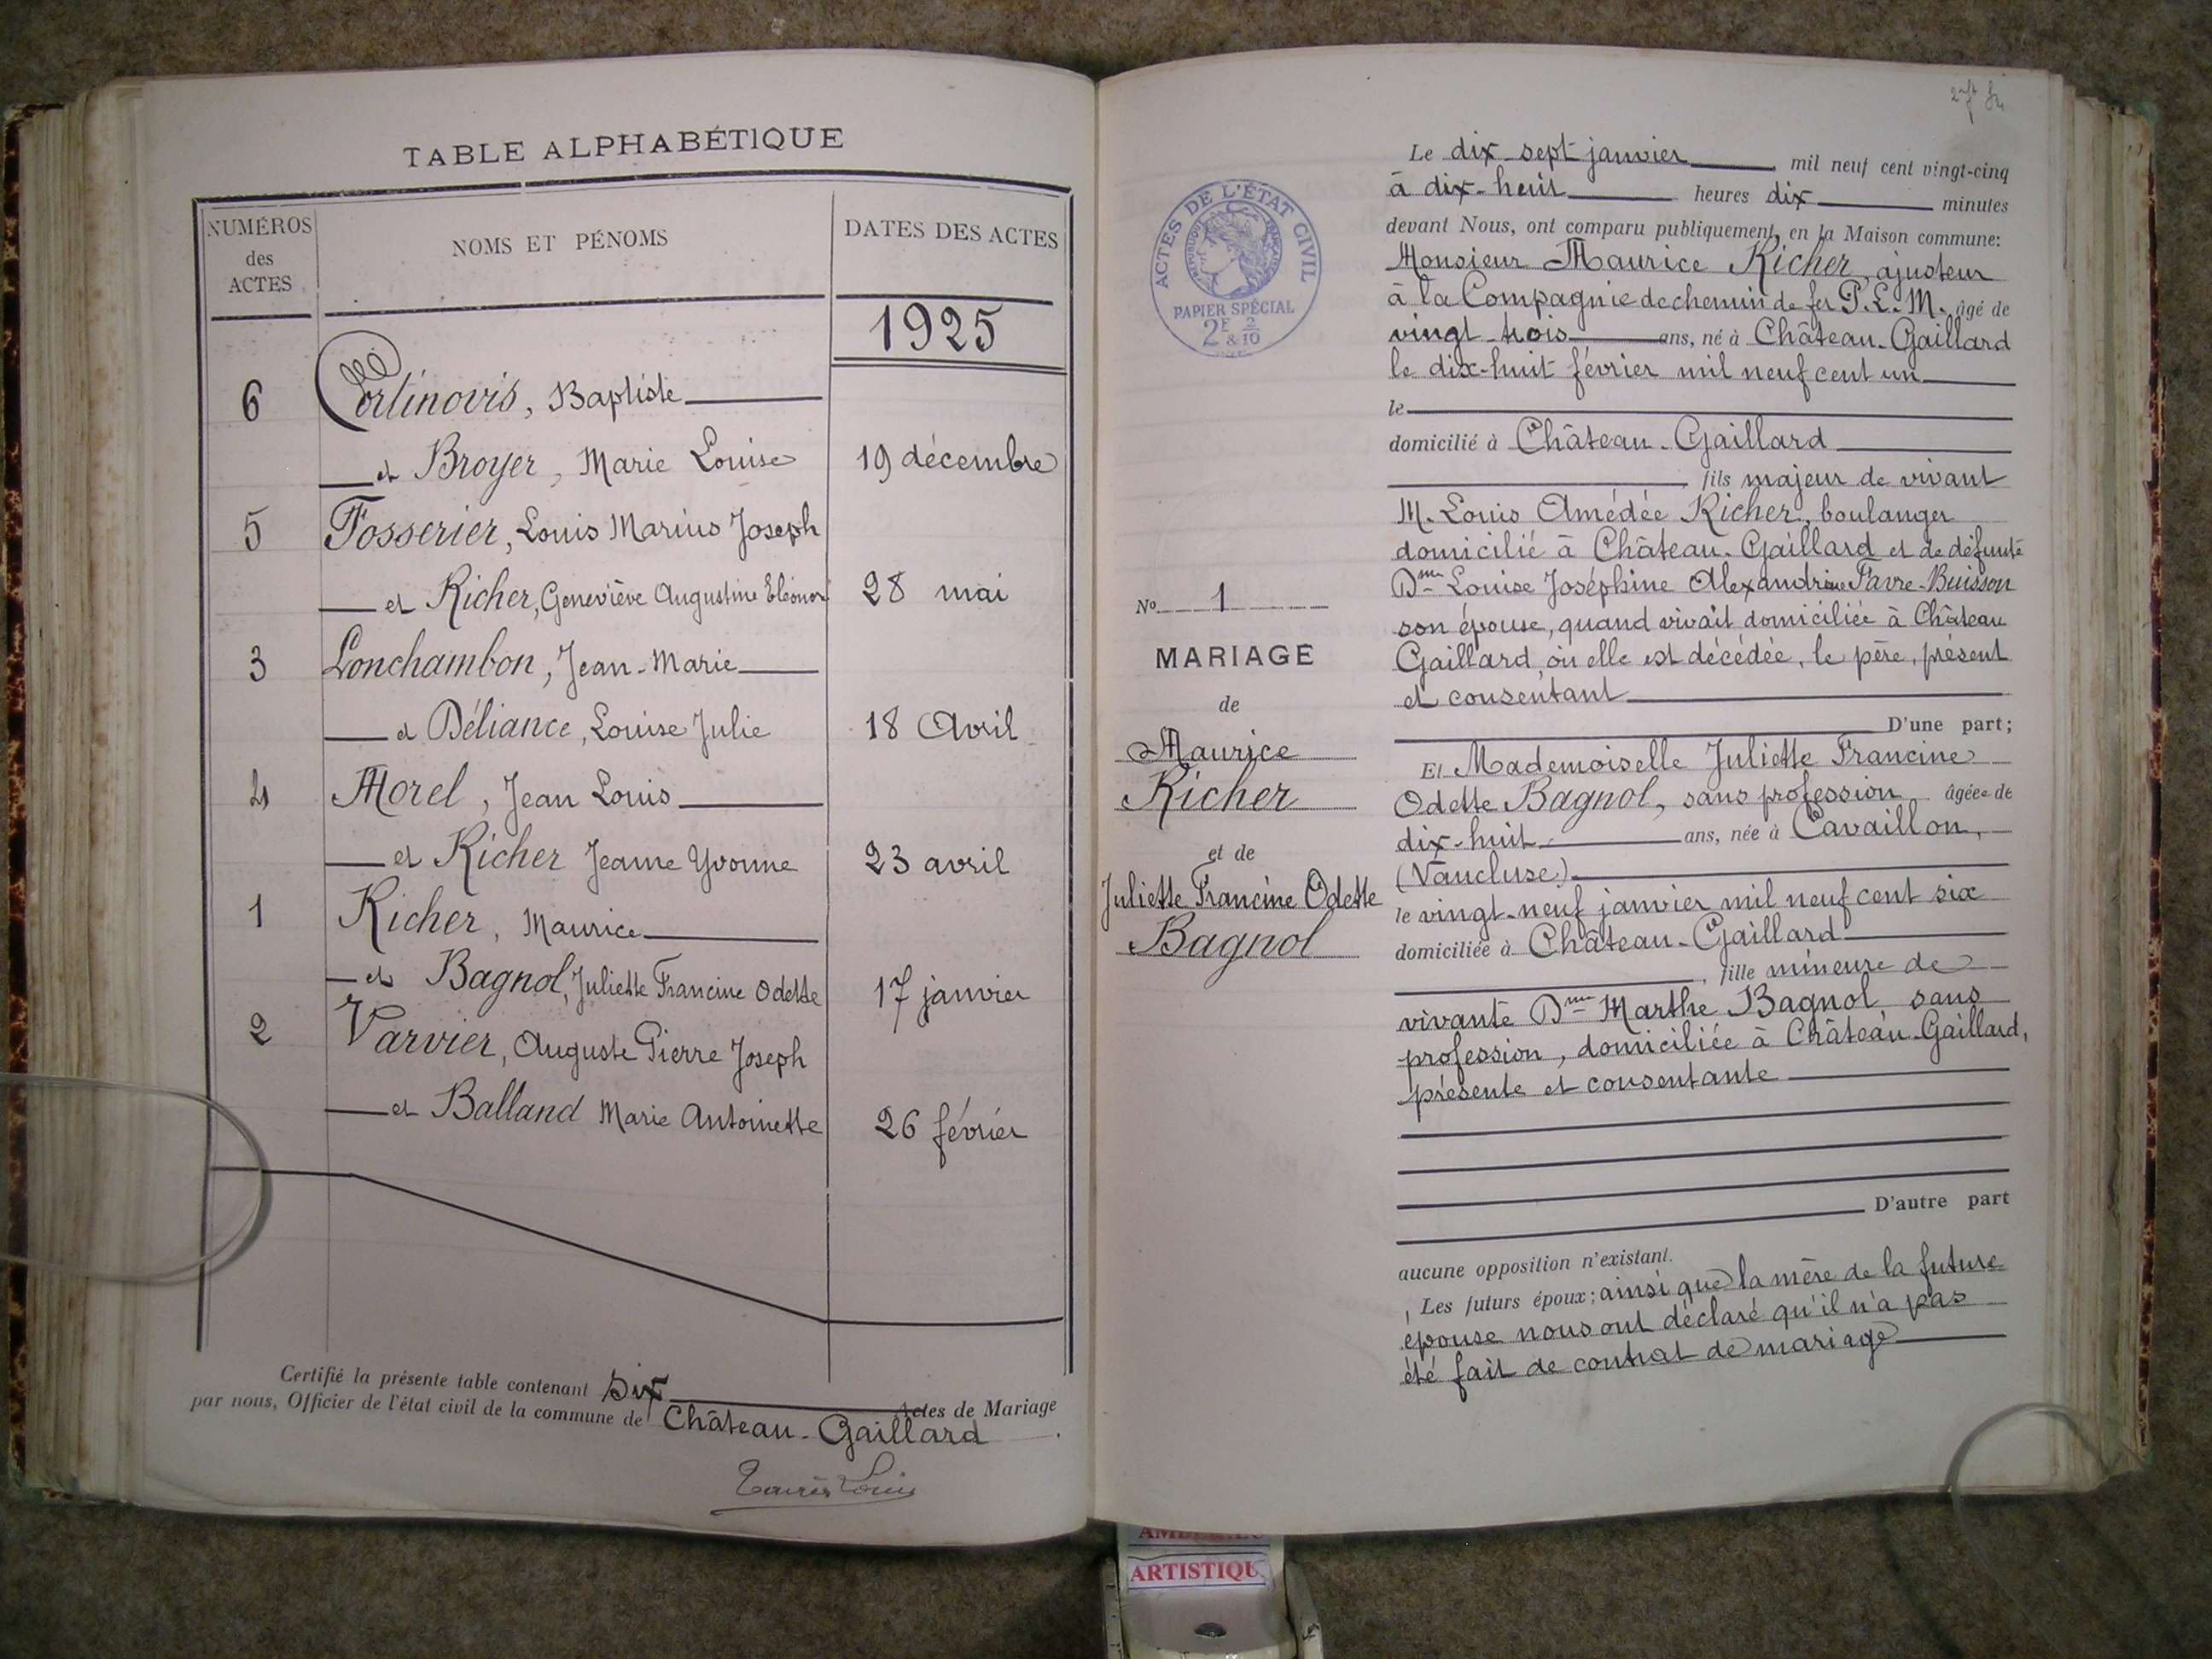 TABLE ALPHABÉTIQUE
NUMÉROS
des
ACTES
NOMS ET PÉNOMS
DATES DES ACTES
1925
6 Cortinovis, Baptiste
et Broyer, Marie Louise 19 décembre
5 Fosserier, Louis Marius Joseph
et Richer, Geneviève Augustine Eléonor 28 mai
3 Lonchambon, Jean-Marie
et Déliance, Louise Julie 18 Avril
4 Morel, Jean Louis
et Richer Jeanne Yvonne 23 avril
1 Richer, Maurice
et Bagnol, Juliette Francine Odette 17 janvier
2 Varvier, Auguste Pierre Joseph
et Balland Marie Antoinette 26 février
Certifié la présente table contenant Six Actes de Mariage
par nous, Officier de l'état civil de la commune de Château-Gaillard.
Louis
ACTES DE L'ÉTAT CIVIL
RÉPUBLIQUE FRANÇAISE
PAPIER SPÉCIAL
2F & 2/10
No 1
MARIAGE
de
Maurice
Richer
et de
Juliette Francine Odette
Bagnol
Le dix-sept janvier mil neuf cent vingt-cinq
à dix-huit heures dix minutes
devant Nous, ont comparu publiquement, en la Maison commune:
Monsieur Maurice Richer, ajusteur
à la Compagnie de chemin de fer P.L.M. âgé de
vingt-trois ans, né à Château-Gaillard
le dix-huit février mil neuf cent un
le
domicilié à Château-Gaillard
, fils majeur de vivant
M. Louis Amédée Richer, boulanger
domicilié à Château-Gaillard et de défunte
Dme Louise Joséphine Alexandrine Favre-Buisson
son épouse, quand vivait domiciliée à Château
Gaillard, où elle est décédée, le père, présent
et consentant
D'une part;
Et Mademoiselle Juliette Francine
Odette Bagnol, sans profession âgée de
dix-huit ans, née à Cavaillon,
(Vaucluse)
le vingt-neuf janvier mil neuf cent six
domiciliée à Château-Gaillard
, fille mineure de
vivante Dme Marthe Bagnol sans
profession, domiciliée à Château-Gaillard,
présente et consentante
D'autre part
aucune opposition n'existant.
Les futurs époux; ainsi que la mère de la future
épouse nous ont déclaré qu'il n'a pas
été fait de contrat de mariage
ARTISTIQU